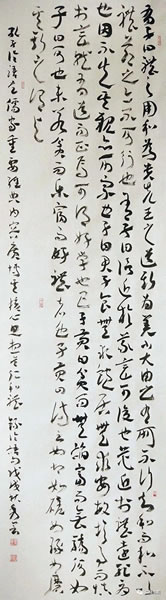 有子曰禮之用和為貴先王之道斯為美小大由之有所不行知和而和不以
禮節之亦不可行也有子曰信近於義言可復也恭近於禮遠恥辱
也因不失其親亦可宗也子曰君子食無求飽居無求安敏於事而慎
於言就有道而正焉可謂好學也已子貢曰貧而無諂富而無驕何如
子曰可也未若貧而樂富而好禮者也子貢曰詩云如切如磋如琢如磨
其斯之謂與
孔子論語乃儒家重要經典內容廣博其核心思想是仁和禮 錄論語句戊戌秋